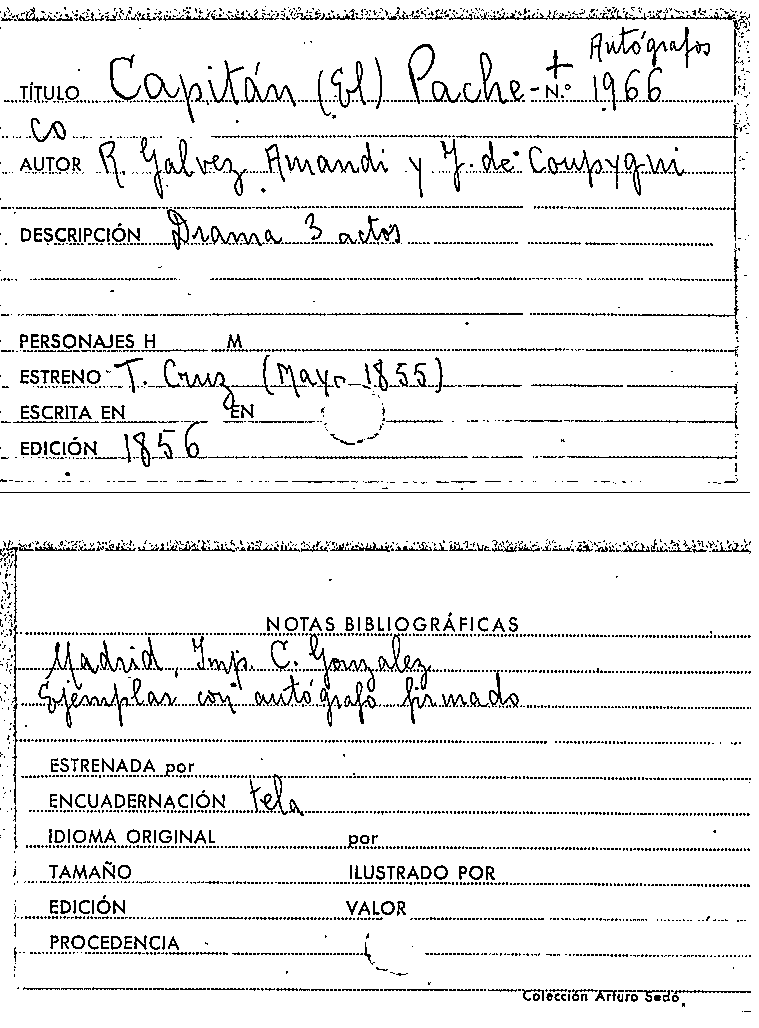 Autógrafos
TÍTULO Capitán (El) Pache- + N.º 1966
co
AUTOR R. Galvez Amandi y J. de Coupygni
DESCRIPCIÓN Drama 3 actos
PERSONAJES H M
ESTRENO T. Cruz (Mayo 1855)
ESCRITA EN EN
EDICIÓN 1856
NOTAS BIBLIOGRÁFICAS
Madrid, Imp. C. Gonzalez
Ejemplar con autógrafo firmado
ESTRENADA por
ENCUADERNACIÓN tela
IDIOMA ORIGINAL por
TAMAÑO ILUSTRADO POR
EDICIÓN VALOR
PROCEDENCIA
Colección Arturo Sedó.